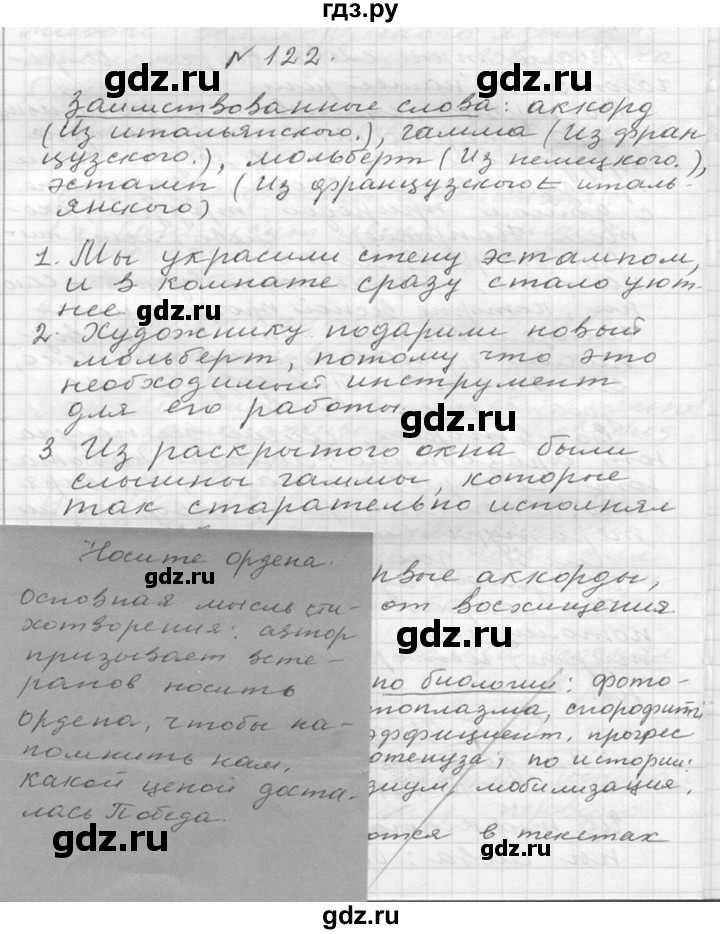 гдз.ру
№ 122.
Заимствованные слова: аккорд
(Из итальянского.), гамма (Из фран-
цузского.), мольберт (Из немецкого.),
эстамп (Из французского ← италь-
янского)
1. Мы украсили стену эстампом,
и в комнате сразу стало уют-
нее.
2. Художнику подарили новый
мольберт, потому что это
необходимый инструмент
для его работы.
3 Из раскрытого окна были
слышны гаммы, которые
так старательно исполнял
рвые аккорды,
от восхищения
по биологии: фото-
топлазма, спорофиты
эффициент, прогрес
отенуза; по истории:
зиум, мобилизация,
ются в текстах
Носите ордена.
Основная мысль сти-
хотворения: автор
призывает вете-
ранов носить
ордена, чтобы на-
помнить нам,
какой ценой доста-
лась Победа.
gdz.ru
gdz.ru
gdz.ru
gdz.ru
gdz.ru
gdz.ru
gdz.ru
gdz.ru
gdz.ru
gdz.ru
gdz.ru
gdz.ru